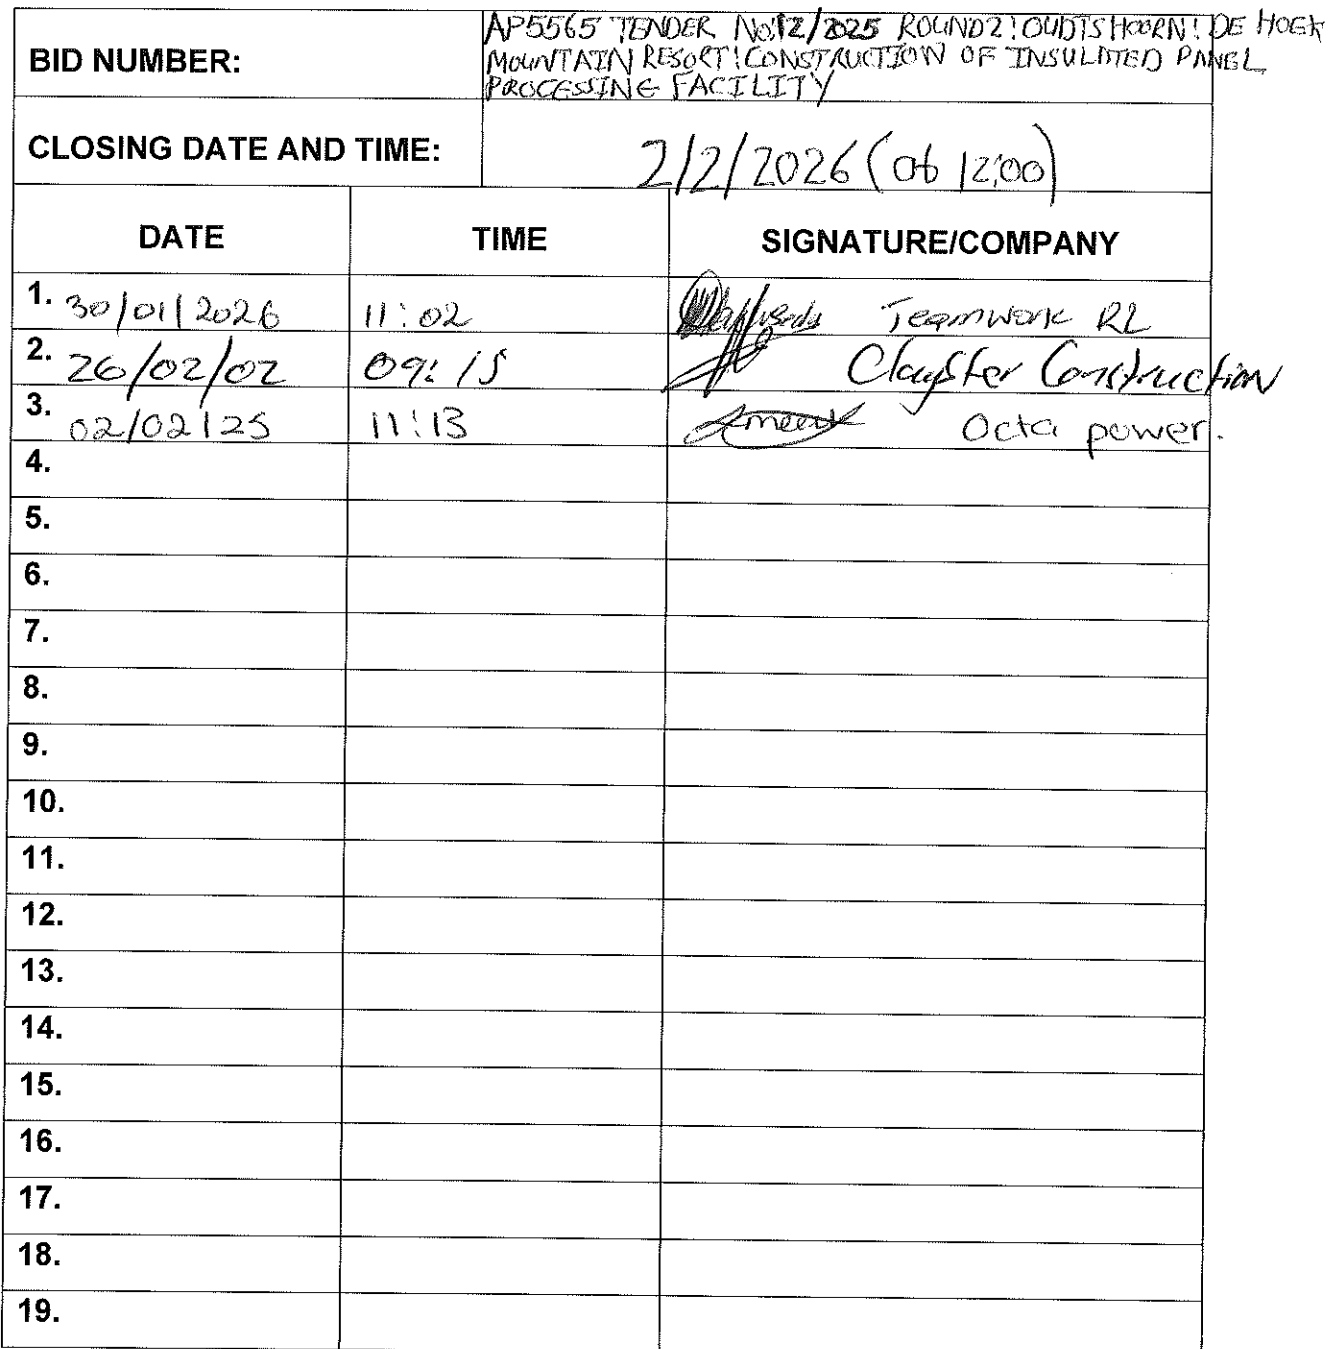 BID NUMBER:
AP5565 TENDER No:12/2025 ROUND2: OUDTSHOORN: DE HOEK
MOUNTAIN RESORT: CONSTRUCTION OF INSULATED PANEL
PROCESSING FACILITY
CLOSING DATE AND TIME:
2/2/2026 (06 12:00)
DATE TIME SIGNATURE/COMPANY
1. 30/01/2026 11:02 Teamwork RL
2. 26/02/02 09:15 Clayster Construction
3. 02/02/25 11:13 Octa power.
4.
5.
6.
7.
8.
9.
10.
11.
12.
13.
14.
15.
16.
17.
18.
19.